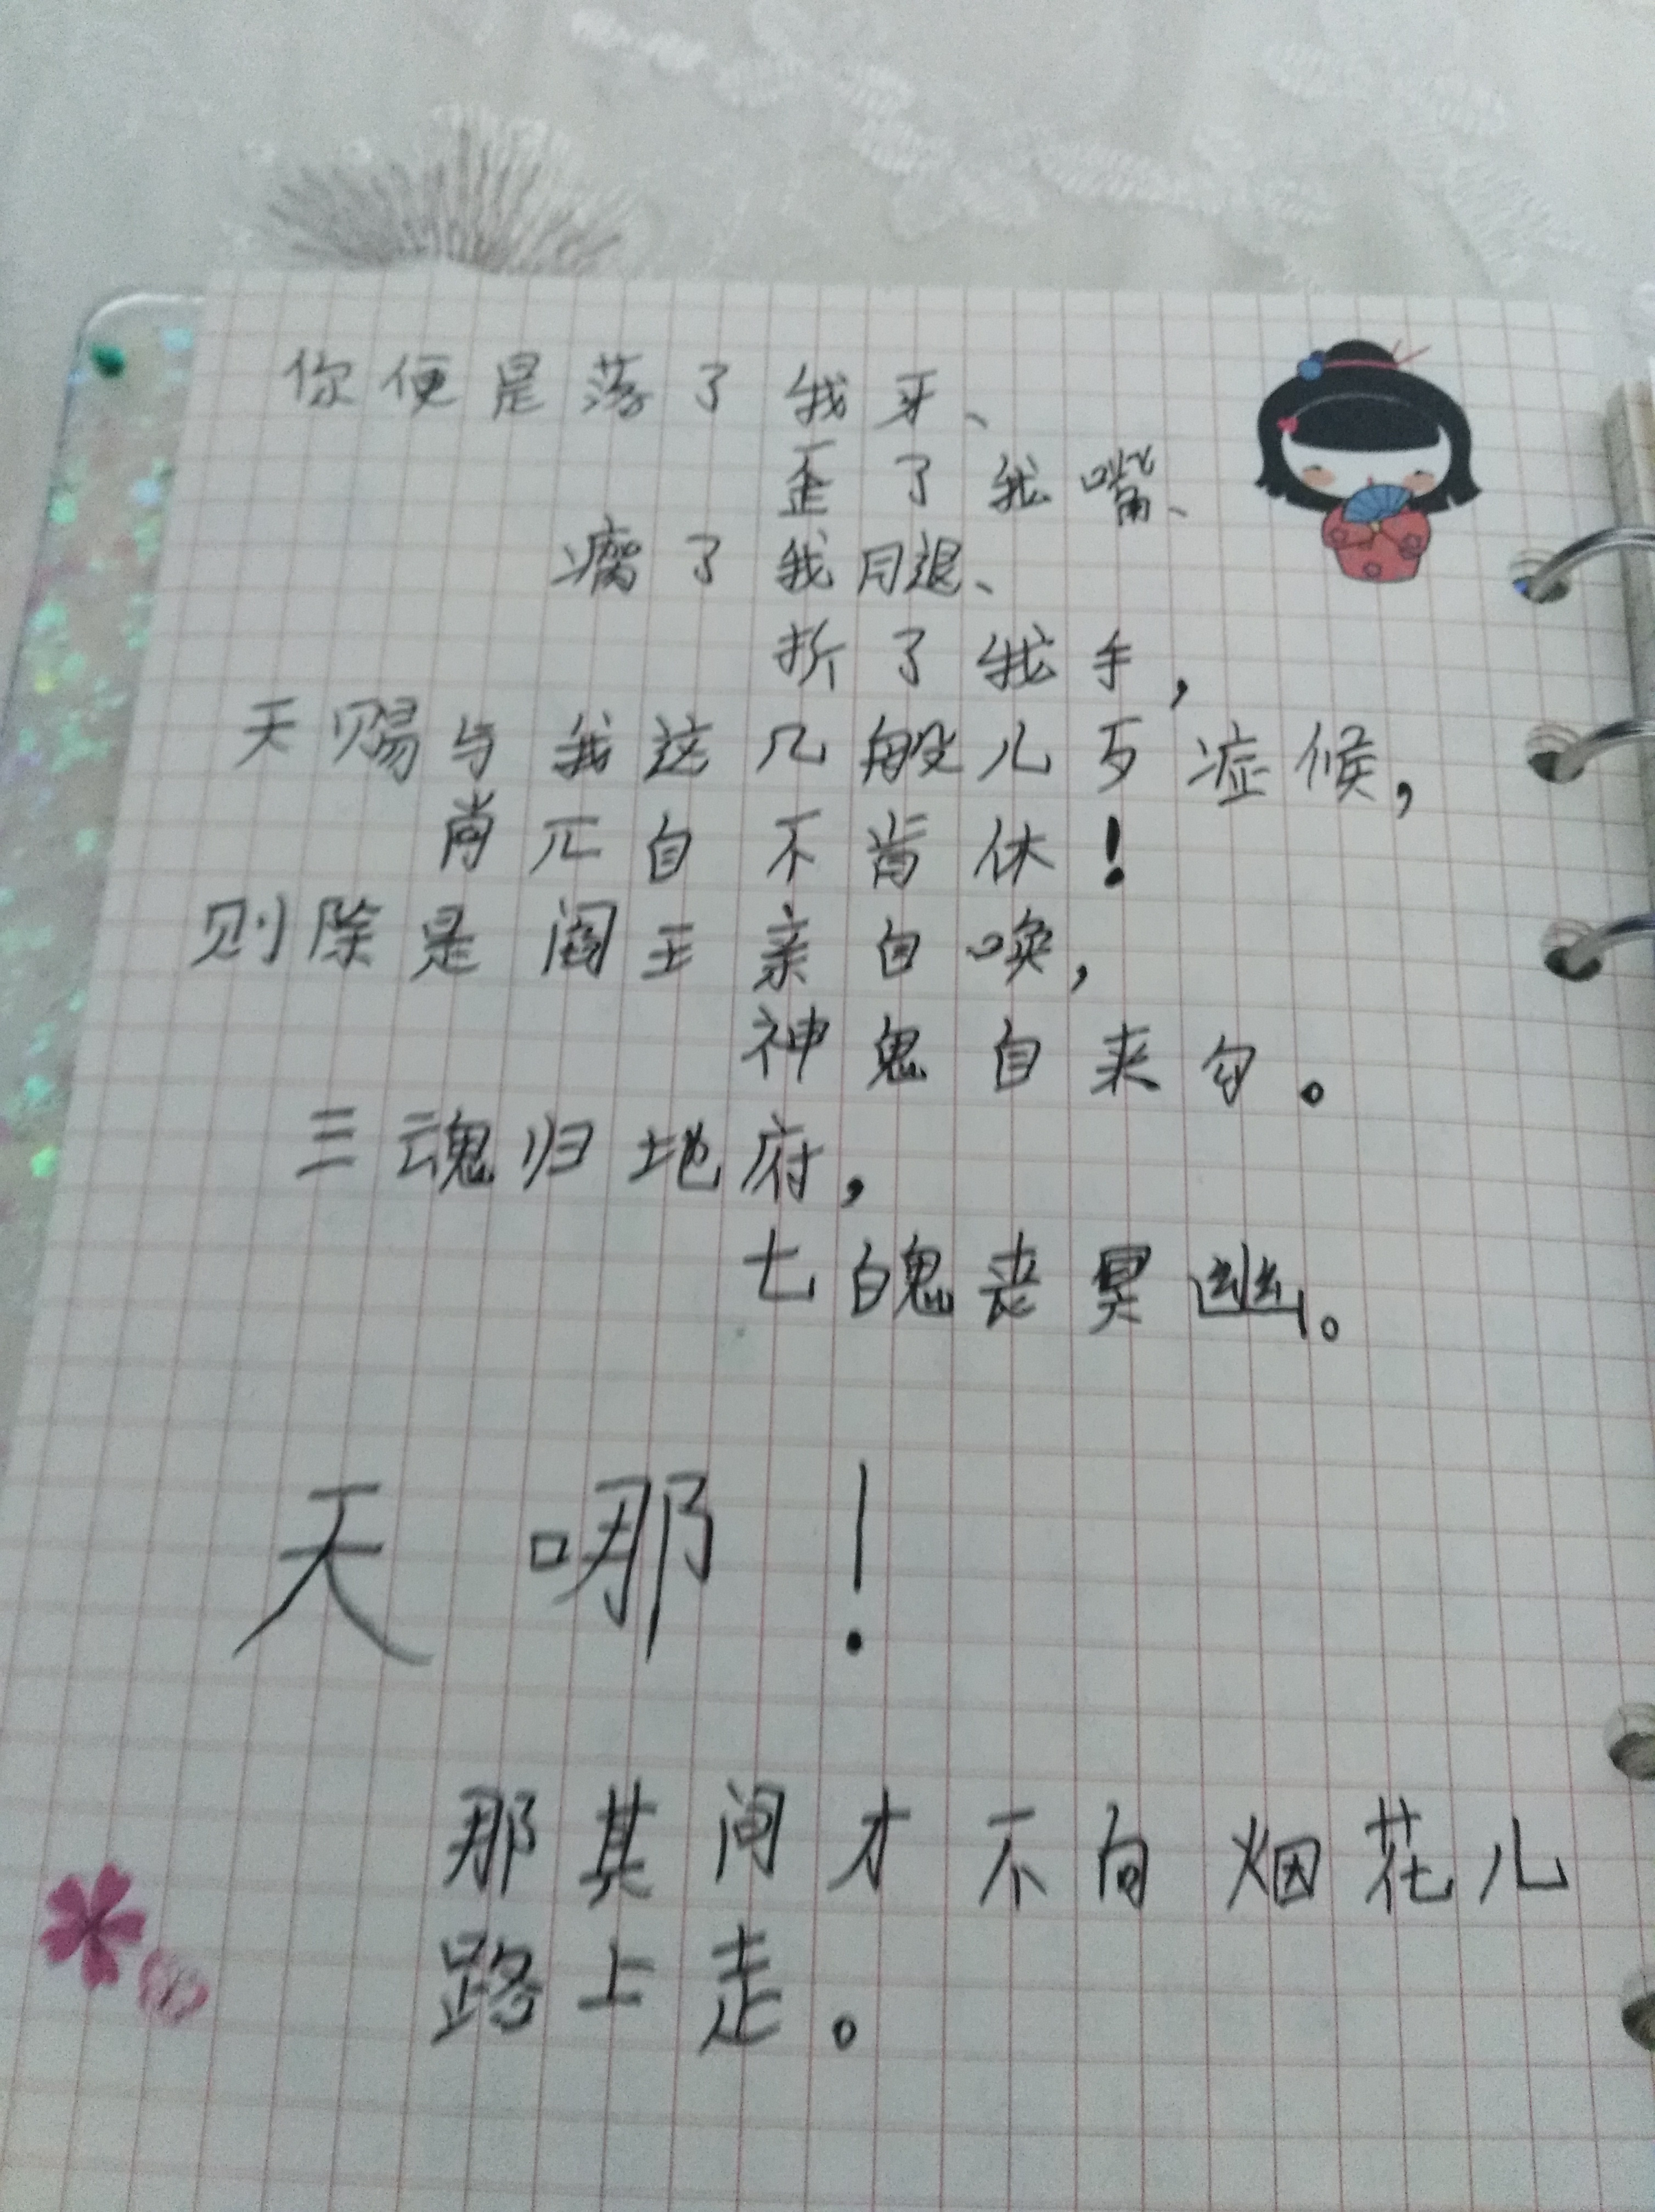 你便是落了我牙、
歪了我嘴、
瘸了我腿、
折了我手,
天赐与我这几般儿歹症候,
尚兀自不肯休!
则除是阎王亲自唤,
神鬼自来勾。
三魂归地府,
七魄丧冥幽。
天哪!
那其间才不向烟花儿
路上走。